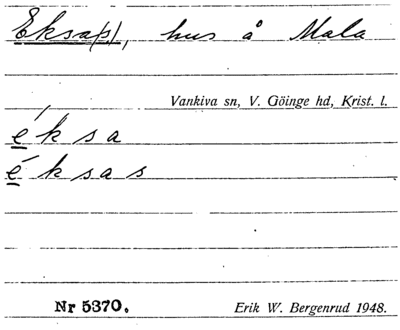 Eksa(s), hus å Mala
Vankiva sn, V. Göinge hd, Krist. l.
éksa
éksas
Nr 5370. Erik W. Bergenrud 1948.